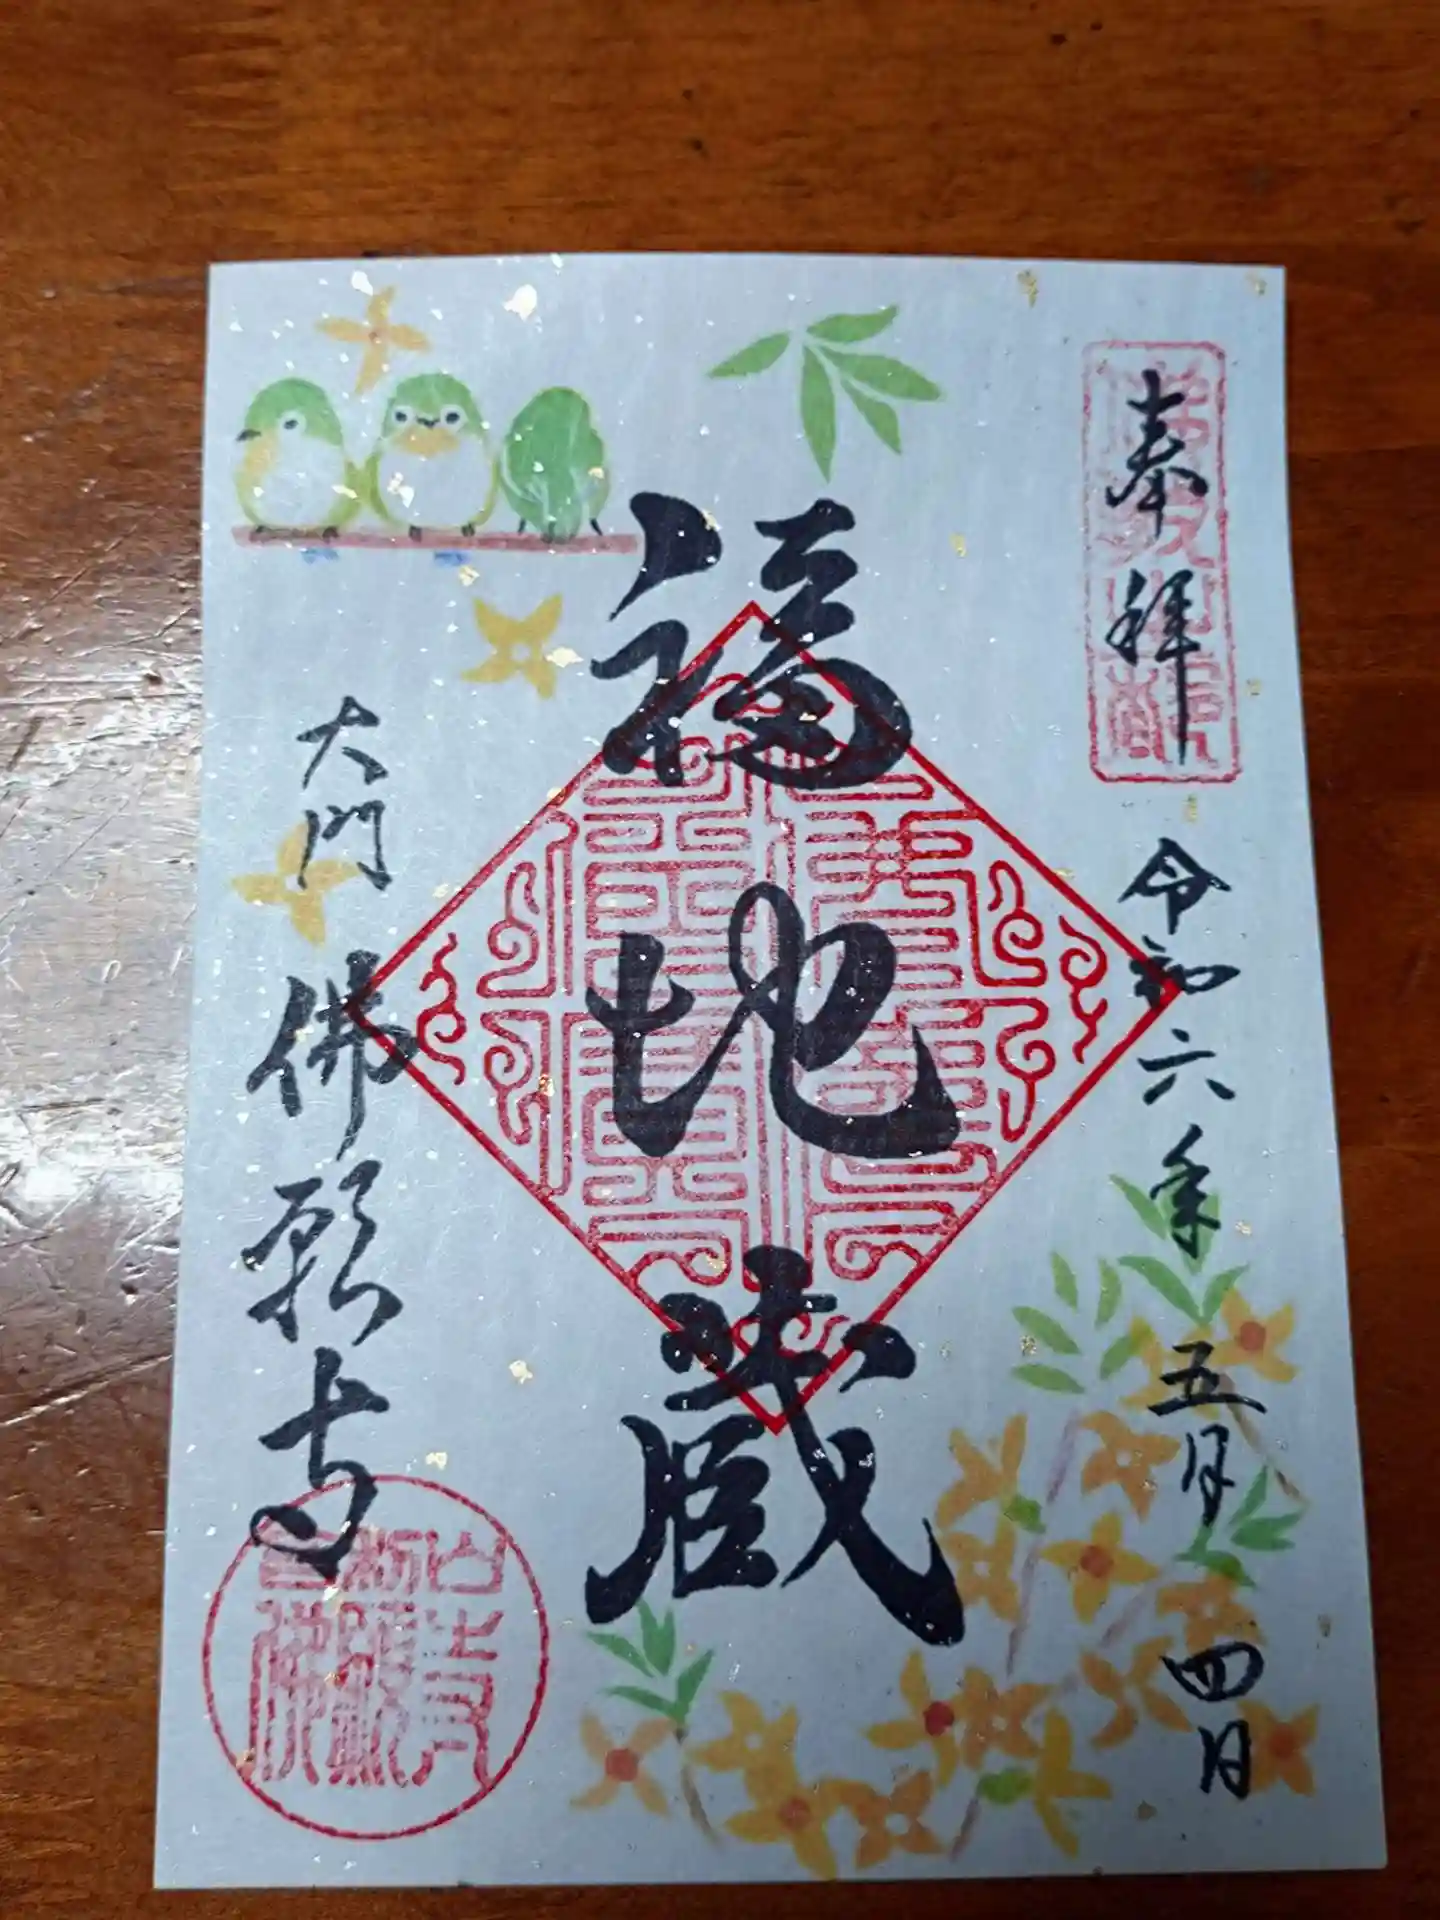 奉拝
令和六年五月四日
福地蔵
大門
佛願寺